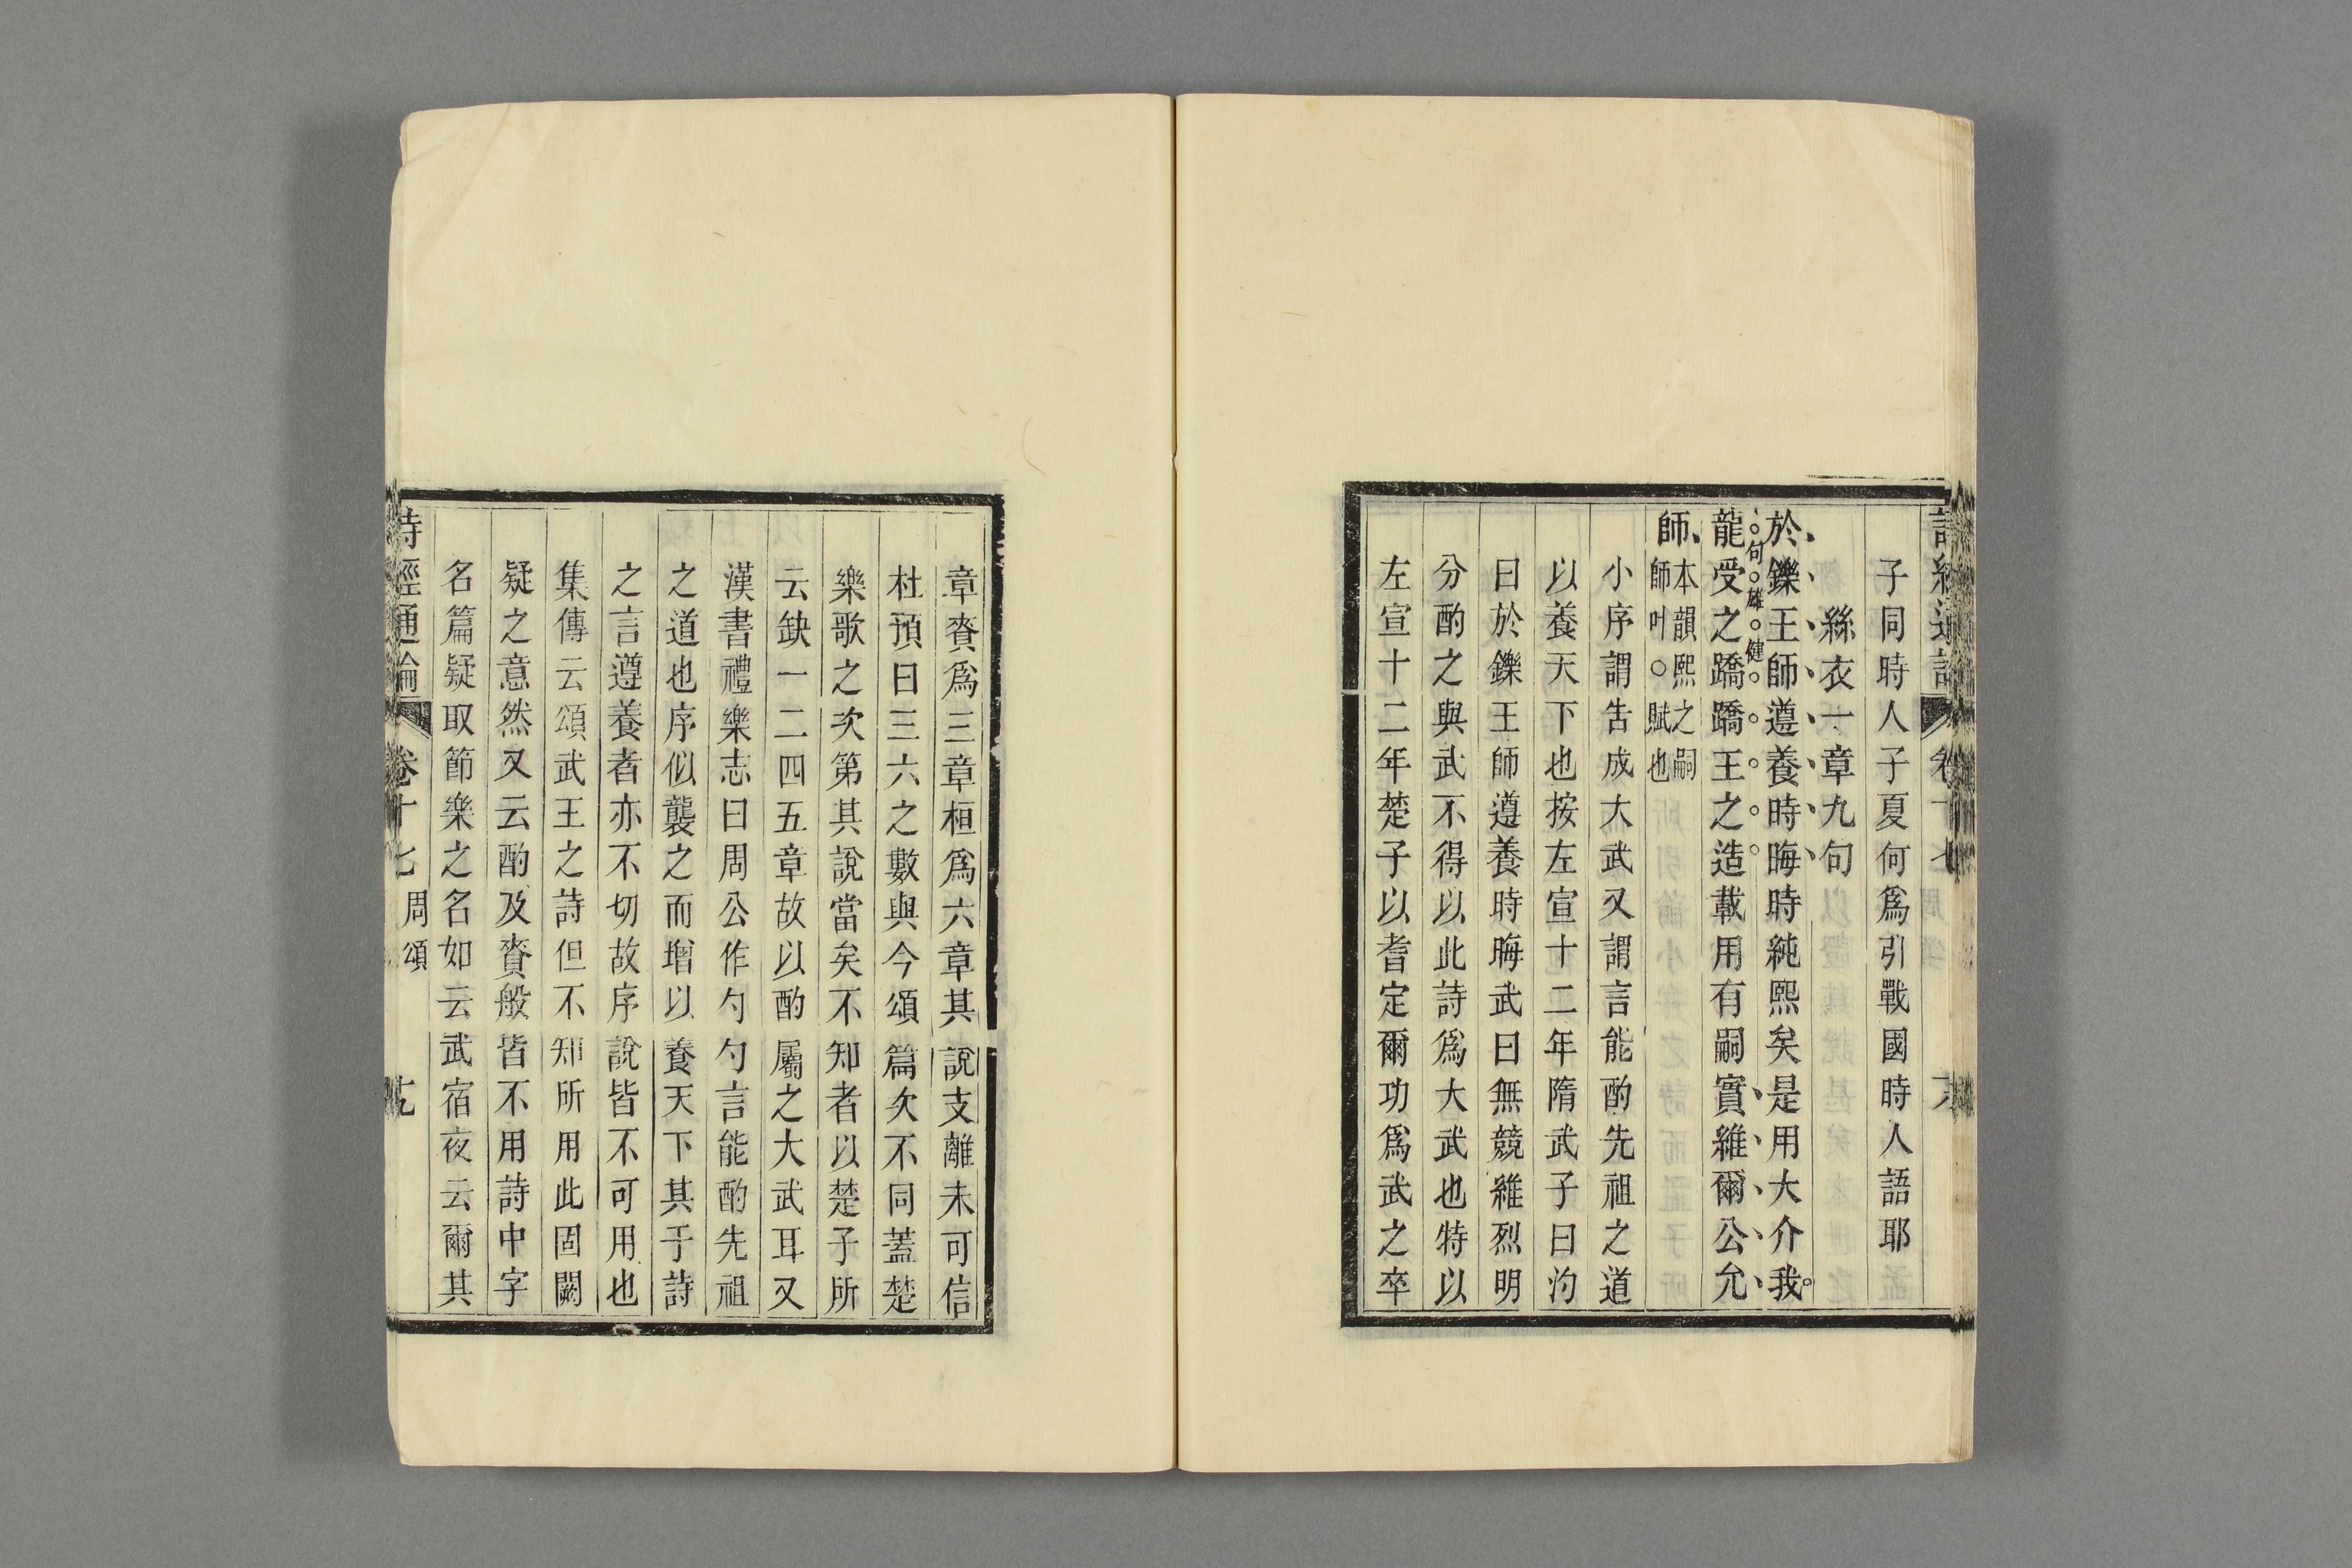 子同時人子夏何爲引戰國時人語耶
絲衣一章九句
於鑠王師遵養時晦時純熙矣是用大介我
句雄健
龍受之蹻蹻王之造載用有嗣實維爾公允
師本韻熙之嗣師叶○賦也
小序謂告成大武又謂言能酌先祖之道
以養天下也按左宣十二年隋武子曰汋
曰於鑠王師遵養時晦武曰無競維烈明
分酌之與武不得以此詩爲大武也特以
左宣十二年楚子以耆定爾功爲武之卒
章賚爲三章桓爲六章其說支離未可信
杜預曰三六之數與今頌篇次不同蓋楚
樂歌之次第其說當矣不知者以楚子所
云缺一二四五章故以酌屬之大武耳又
漢書禮樂志曰周公作勺勺言能酌先祖
之道也序似襲之而增以養天下其于詩
之言遵養者亦不切故序說皆不可用也
集傳云頌武王之詩但不知所用此固闕
疑之意然又云酌及賚般皆不用詩中字
名篇疑取節樂之名如云武宿夜云爾其
詩經通論 卷十七 周頌